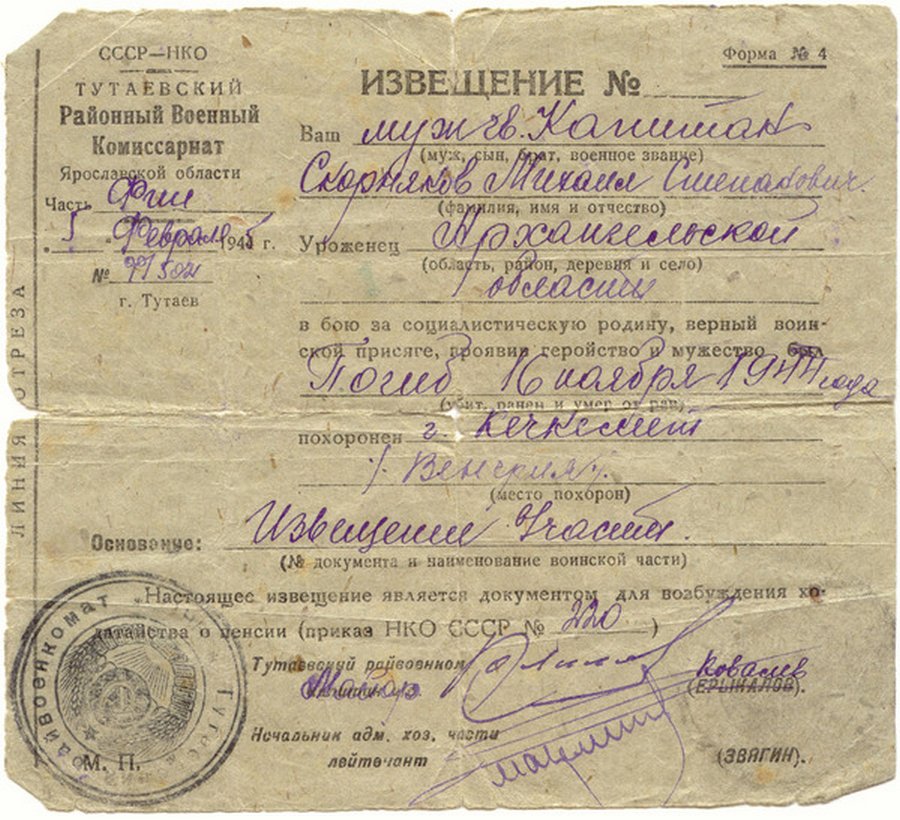 СССР—НКО
ТУТАЕВСКИЙ
Районный Военный
Комиссариат
Ярославской области
Часть Фин
5 Февраля 1945 г.
№
г. Тутаев
ЛИНИЯ ОТРЕЗА
Форма № 4
ИЗВЕЩЕНИЕ №
Ваш муж гв. Капитан
(муж, сын, брат, военное звание)
Скорняков Михаил Степанович.
(фамилия, имя и отчество)
Уроженец Архангельской
(область, район, деревня и село)
области
в бою за социалистическую родину, верный воин-
ской присяге, проявив геройство и мужество был
Погиб 16 ноября 1944 года
(убит, ранен и умер от ран)
похоронен г. Кечкемет
(Венгрия).
(место похорон)
Основание: Извещение в/части.
(№ документа и наименование воинской части)
Настоящее извещение является документом для возбуждения хо-
датайства о пенсии (приказ НКО СССР № 220)
Тутаевский райвоенком
Майор
Ковалев
(ЕРЫКАЛОВ).
Начальник адм. хоз. части
лейтенант
(ЗВЯГИН).
М. П.
райвоенкомат